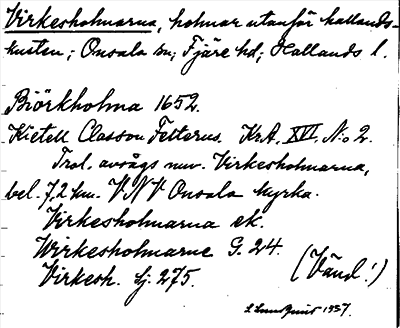 Virkesholmarna, holmar utanför hallands-
kusten; Onsala sn; Fjäre hd; Hallands l.
Biörkholma 1652.
Kietell Classon Felterus. KrA. XVI. No 2.
Trol. avsågs nuv. Virkesholmarna,
bel. 7,2 km. VNV Onsala kyrka.
Virkesholmarna ek.
Wirkesholmarne G. 24.
Virkesh. Sj. 275.
(Vänd!)
Lundquist 1937.